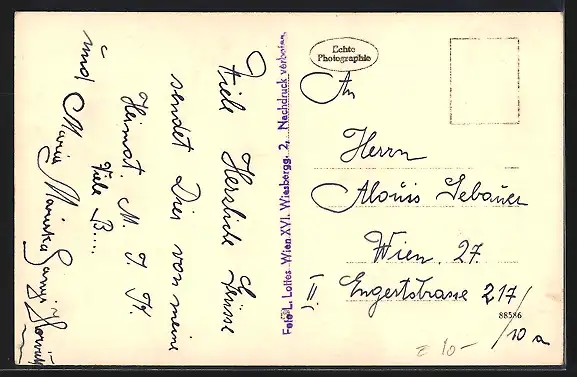 Viele Herzliche Grüsse
sendet Dir von meine
Heimat. M. J. K.
Viele B....
und Maria Marinka
Foto L. Lottes Wien XVI. Wiesbergg. 2, Nachdruck verboten.
Echte
Photographie
An
Herrn
Alouis Gebauer
Wien. 27.
Engertstrasse 217/
II
10 a
88586
10-